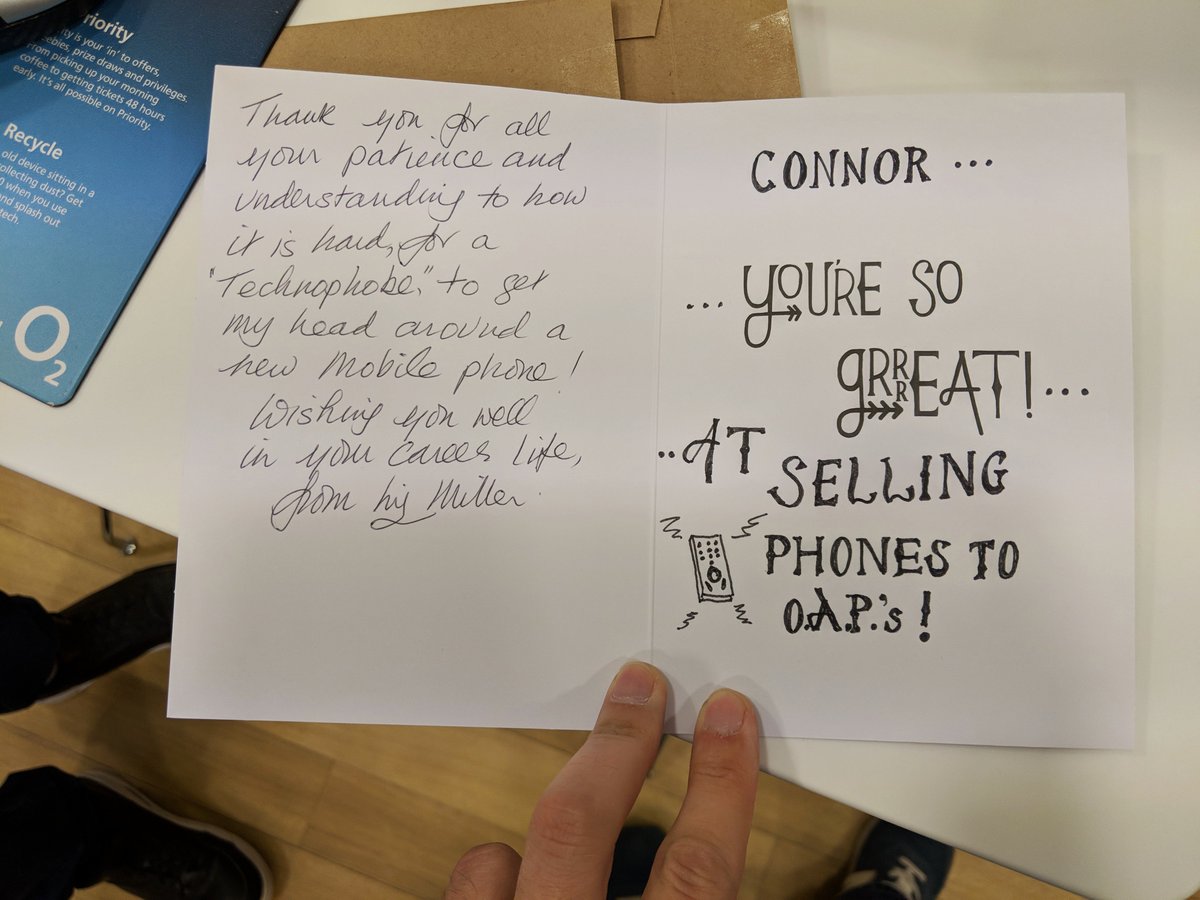 riority
ity is your 'in' to offers,
eebies, prize draws and privileges.
From picking up your morning
coffee to getting tickets 48 hours
early. It's all possible on Priority.
Recycle
old device sitting in a
collecting dust? Get
0 when you use
and splash out
tech.
O2
Thank you for all
your patience and
understanding to how
it is hard, for a
"Technophobe." to get
my head around a
new Mobile phone!
Wishing you well
in your career life,
from Liz Miller.
CONNOR ...
... YOU'RE SO
GRRREAT! ...
..AT
SELLING
PHONES TO
O.A.P.'s!